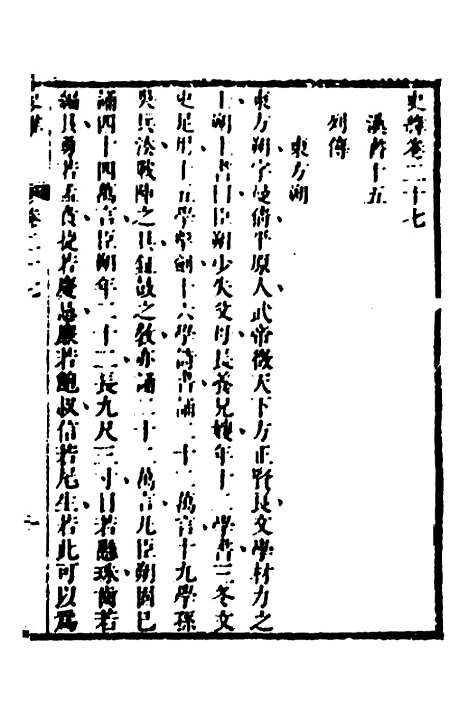 史緯卷二十七
漢書十五
列傳
東方朔
東方朔字曼倩平原人武帝徵天下方正賢良文學材力之
士朔上書曰臣朔少失父母長養兄嫂年十二學書三冬文
史足用十五學擊劍十六學詩書誦二十二萬言十九學孫
吳兵法戰陣之具鉦鼓之教亦誦二十二萬言凡臣朔固已
誦四十四萬言臣朔年二十二長九尺三寸目若懸珠齒若
編貝勇若孟賁捷若慶忌廉若鮑叔信若尾生若此可以爲
卷二十七